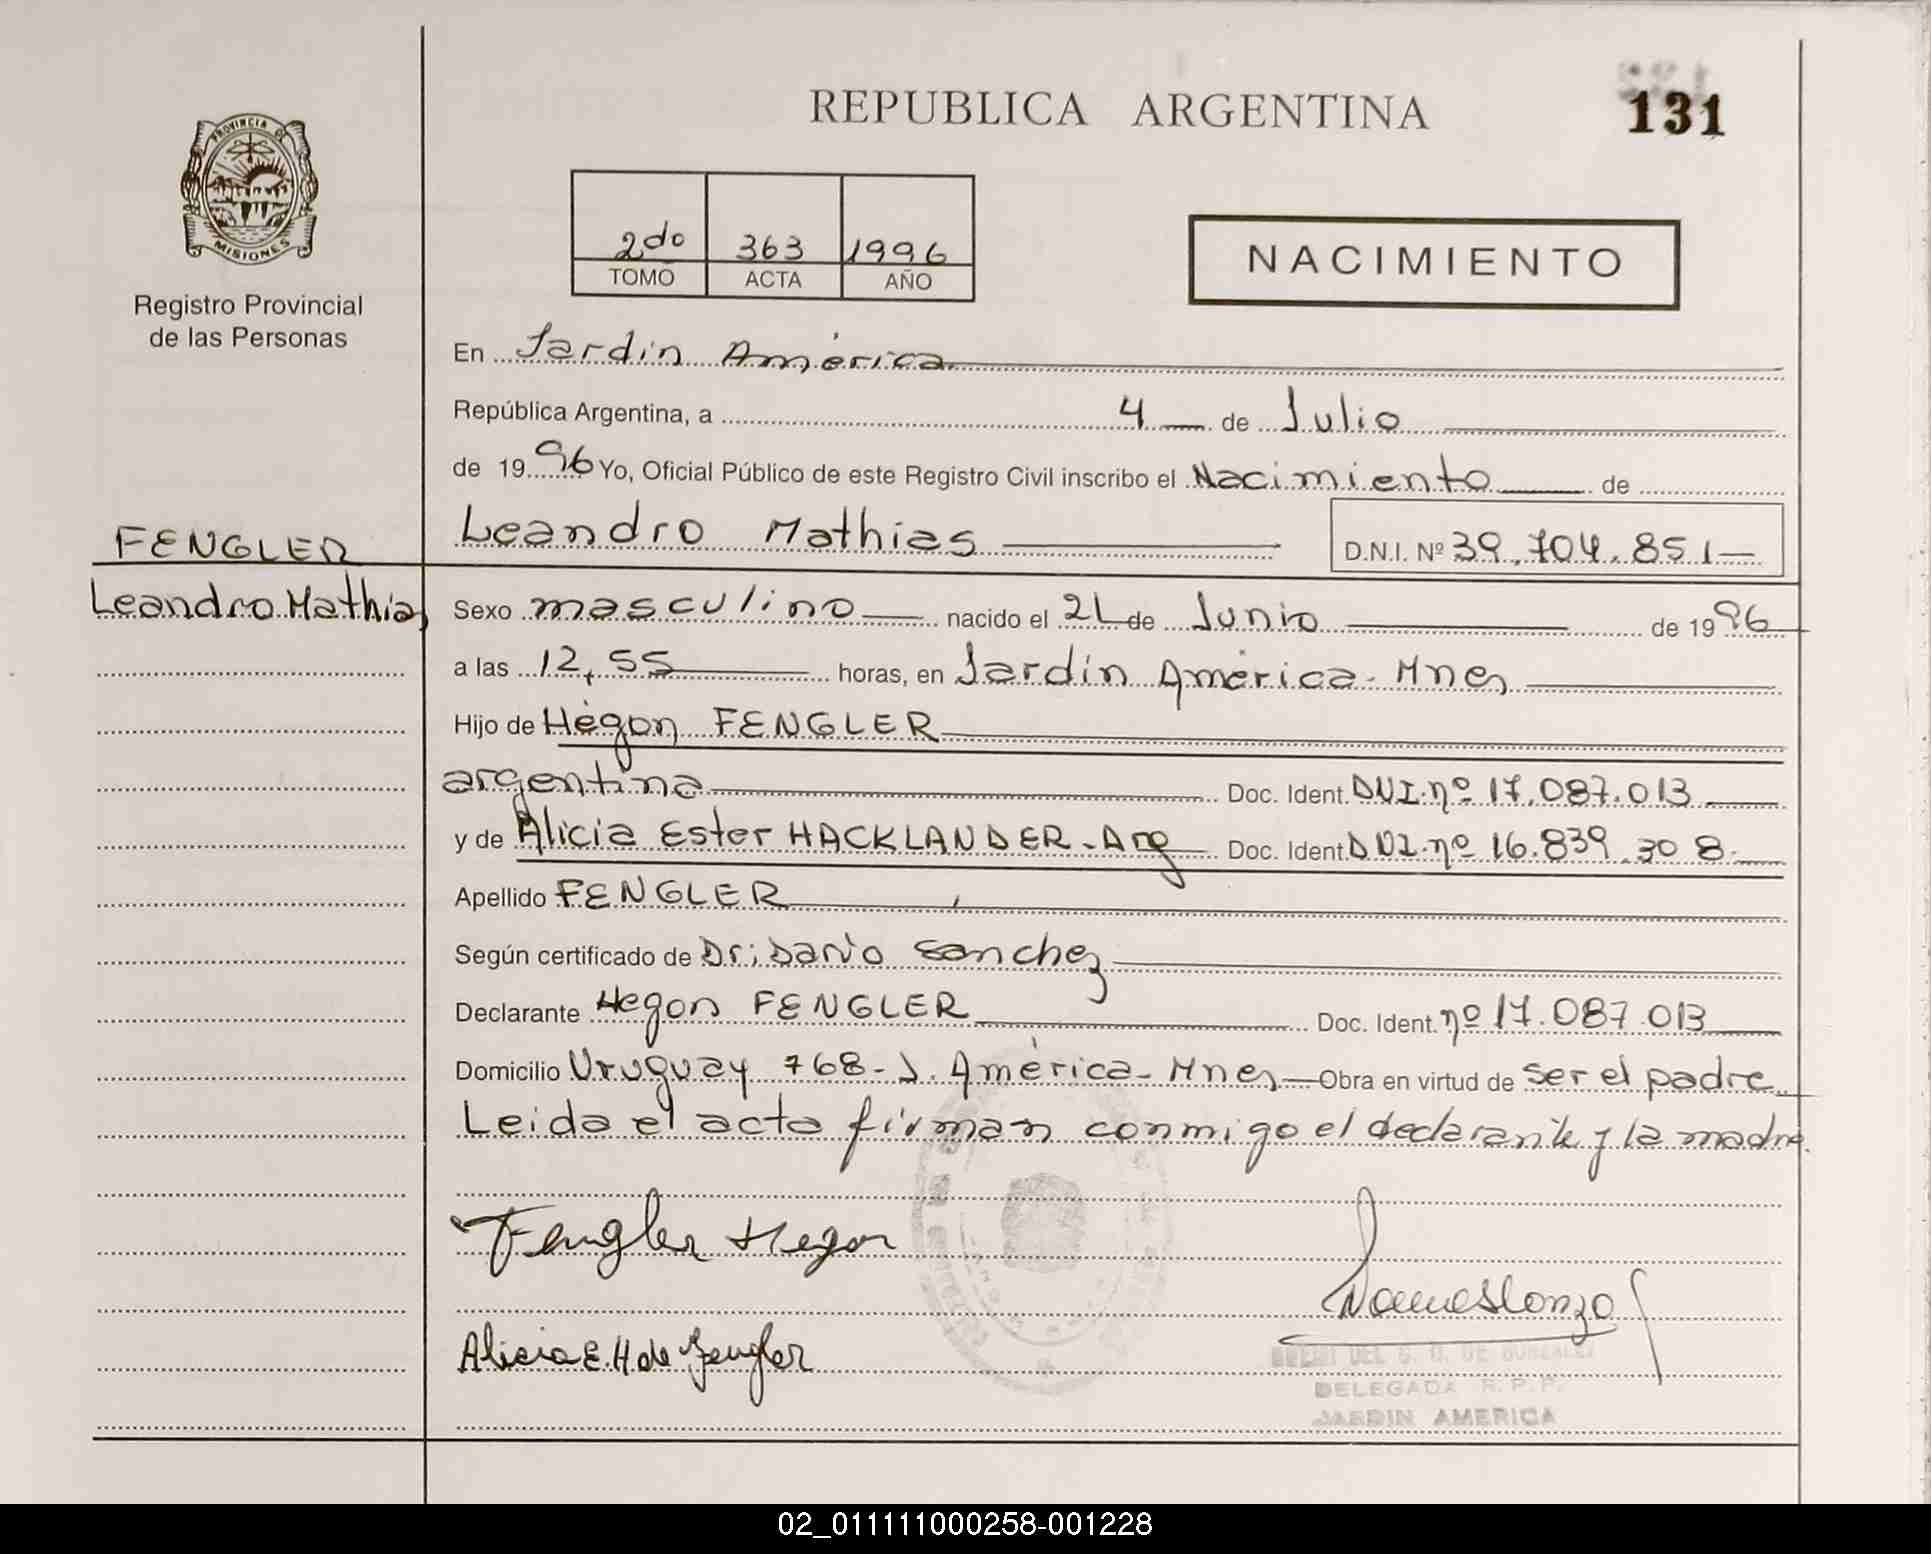 REPUBLICA ARGENTINA
131
PROVINCIA DE
MISIONES
Registro Provincial
de las Personas
2do 363 1996
TOMO ACTA AÑO
NACIMIENTO
En Jardín América
República Argentina, a 4 de Julio
de 1996 Yo, Oficial Público de este Registro Civil inscribo el Nacimiento de
Leandro Mathias D.N.I. Nº 39.704.851
FENGLER
Leandro Mathias
Sexo masculino nacido el 21 de Junio de 1996
a las 12,55 horas, en Jardín América - Mnes
Hijo de Hegon FENGLER
argentina Doc. Ident. DNI. nº 17.087.013
y de Alicia Ester HACKLANDER - Arg Doc. Ident. DNI. nº 16.839.308
Apellido FENGLER
Según certificado de Dr: Darío Sanchez
Declarante Hegon FENGLER Doc. Ident. nº 17.087.013
Domicilio Uruguay 768 - J. América - Mnes Obra en virtud de ser el padre
Leida el acta firman conmigo el declarante y la madre.
Fengler Hegon
Alicia E. H de Fengler
DELEGADA R.P.P.
JARDIN AMERICA
02_011111000258-001228